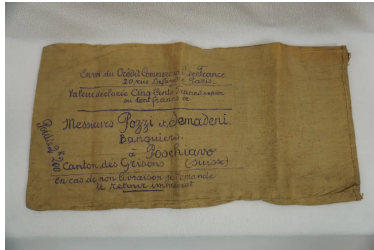 Envoi du Crédit Commercial de France
20 rue Lafayette Paris.
Valeur déclarée Cinq Cents francs
Messieurs Pozzi & Semadeni.
Banquiers
à Poschiavo
Canton des Grisons (Suisse)
En cas de non livraison prière de
le retour immédiat